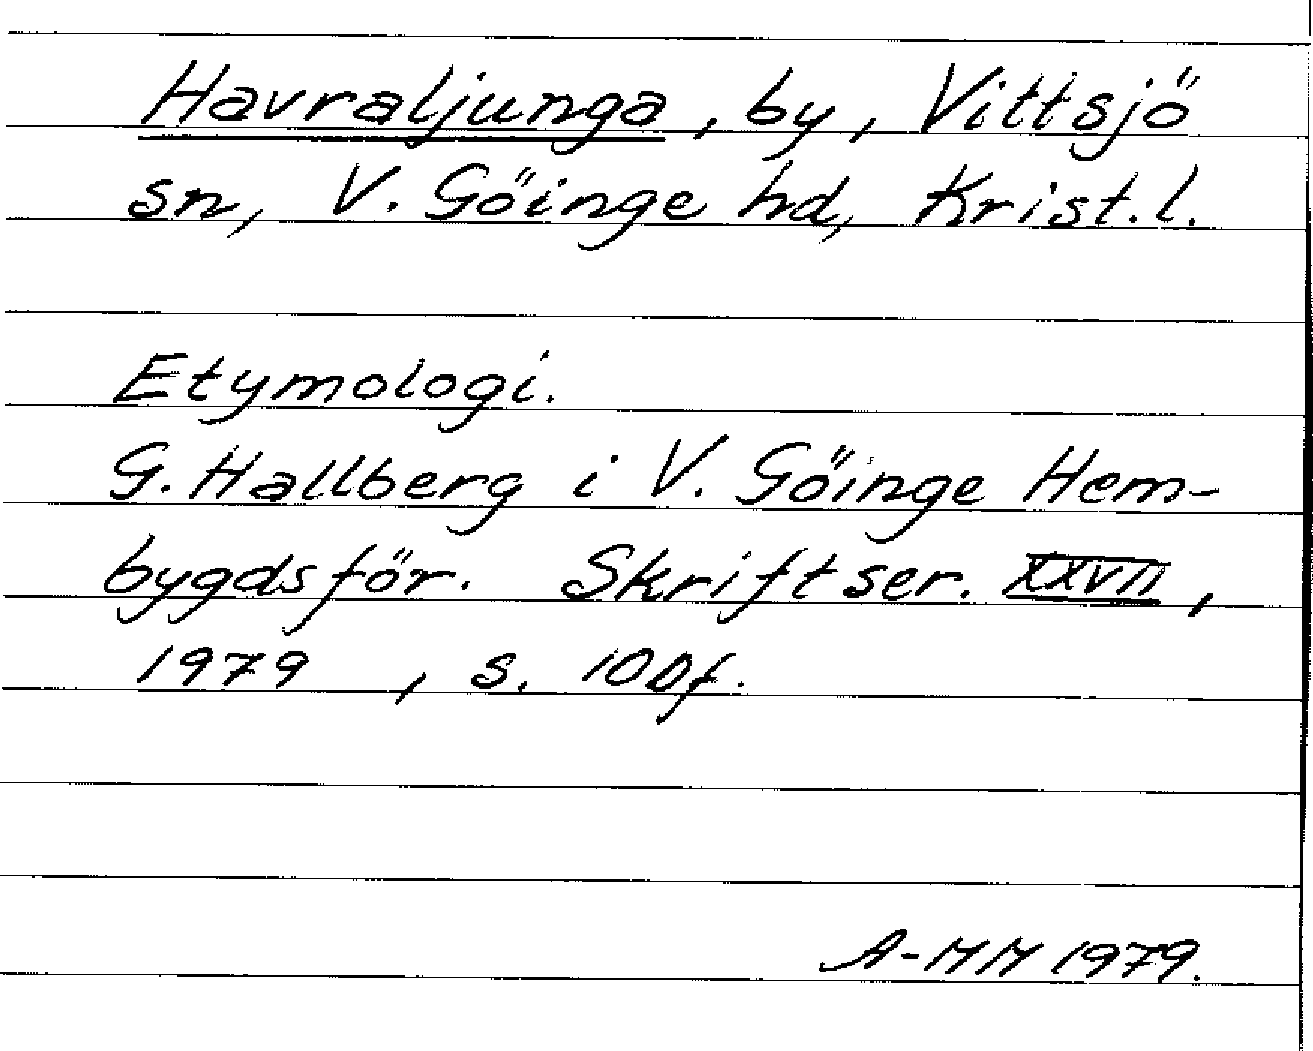 Havraljunga, by, Vittsjö
sn, V. Göinge hd, Krist. l.
Etymologi.
G. Hallberg i V. Göinge Hem-
bygdsför. Skriftser. XXVII,
1979, s. 100f.
A-MM 1979.